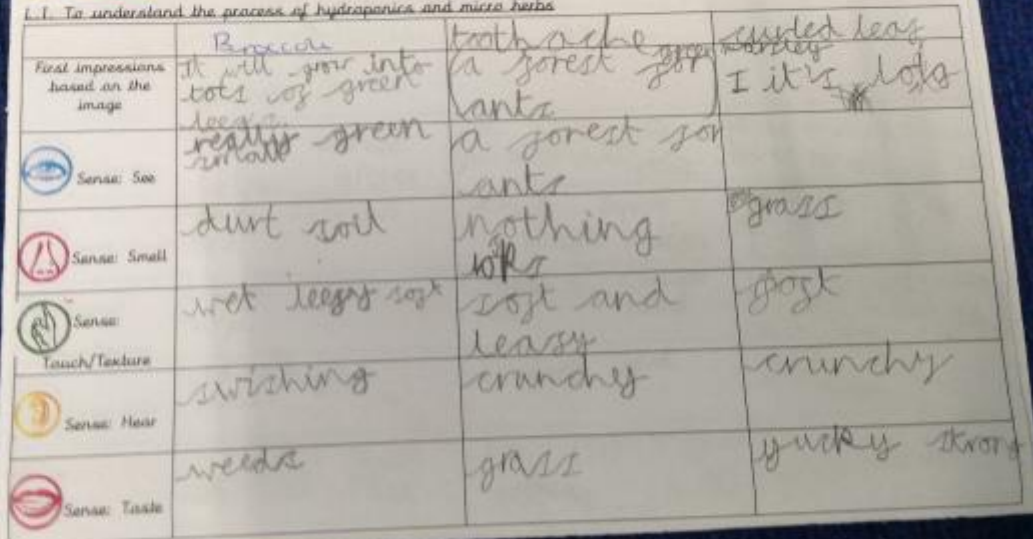 L.I. To understand the process of hydroponics and micro herbs
Broccoli
tooth ache
curled leaf
First impressions
based on the
image
it will grow into
lots of green
a forest for
ants
I it's lots
Sense: See
really green
small
a forest for
ants
Sense: Smell
durt soil
nothing
grass
Sense:
Touch/Texture
wet leefy soft
soft and
leafy
soft
Sense: Hear
swishing
crunchey
crunchy
Sense: Taste
weeds
grass
yucky strong